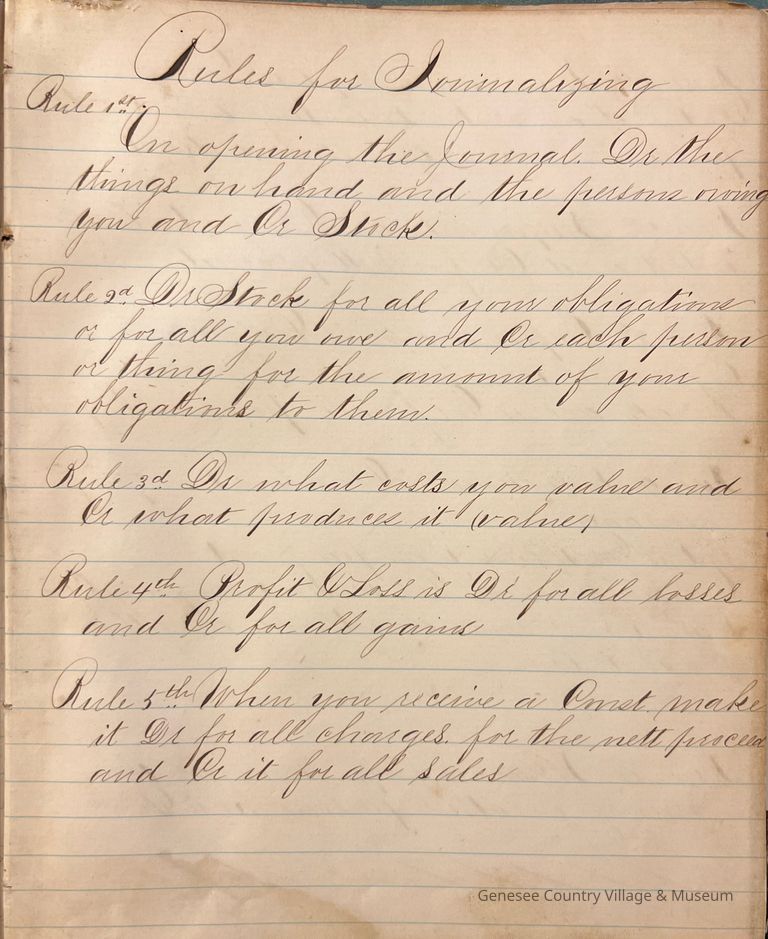 Rules for Journalizing
Rule 1st.
On opening the Journal. Dr the
things on hand and the persons owing
you and Cr Stock.
Rule 2d Dr Stock for all your obligations
or for all you owe and Cr each person
or thing for the amount of your
obligations to them.
Rule 3d Dr what costs you value and
Cr what produces it (value)
Rule 4th Profit & Loss is Dr for all losses
and Cr for all gains
Rule 5th When you receive a Const. make
it Dr for all charges. for the nett proceed
and Cr it for all sales
Genesee Country Village & Museum